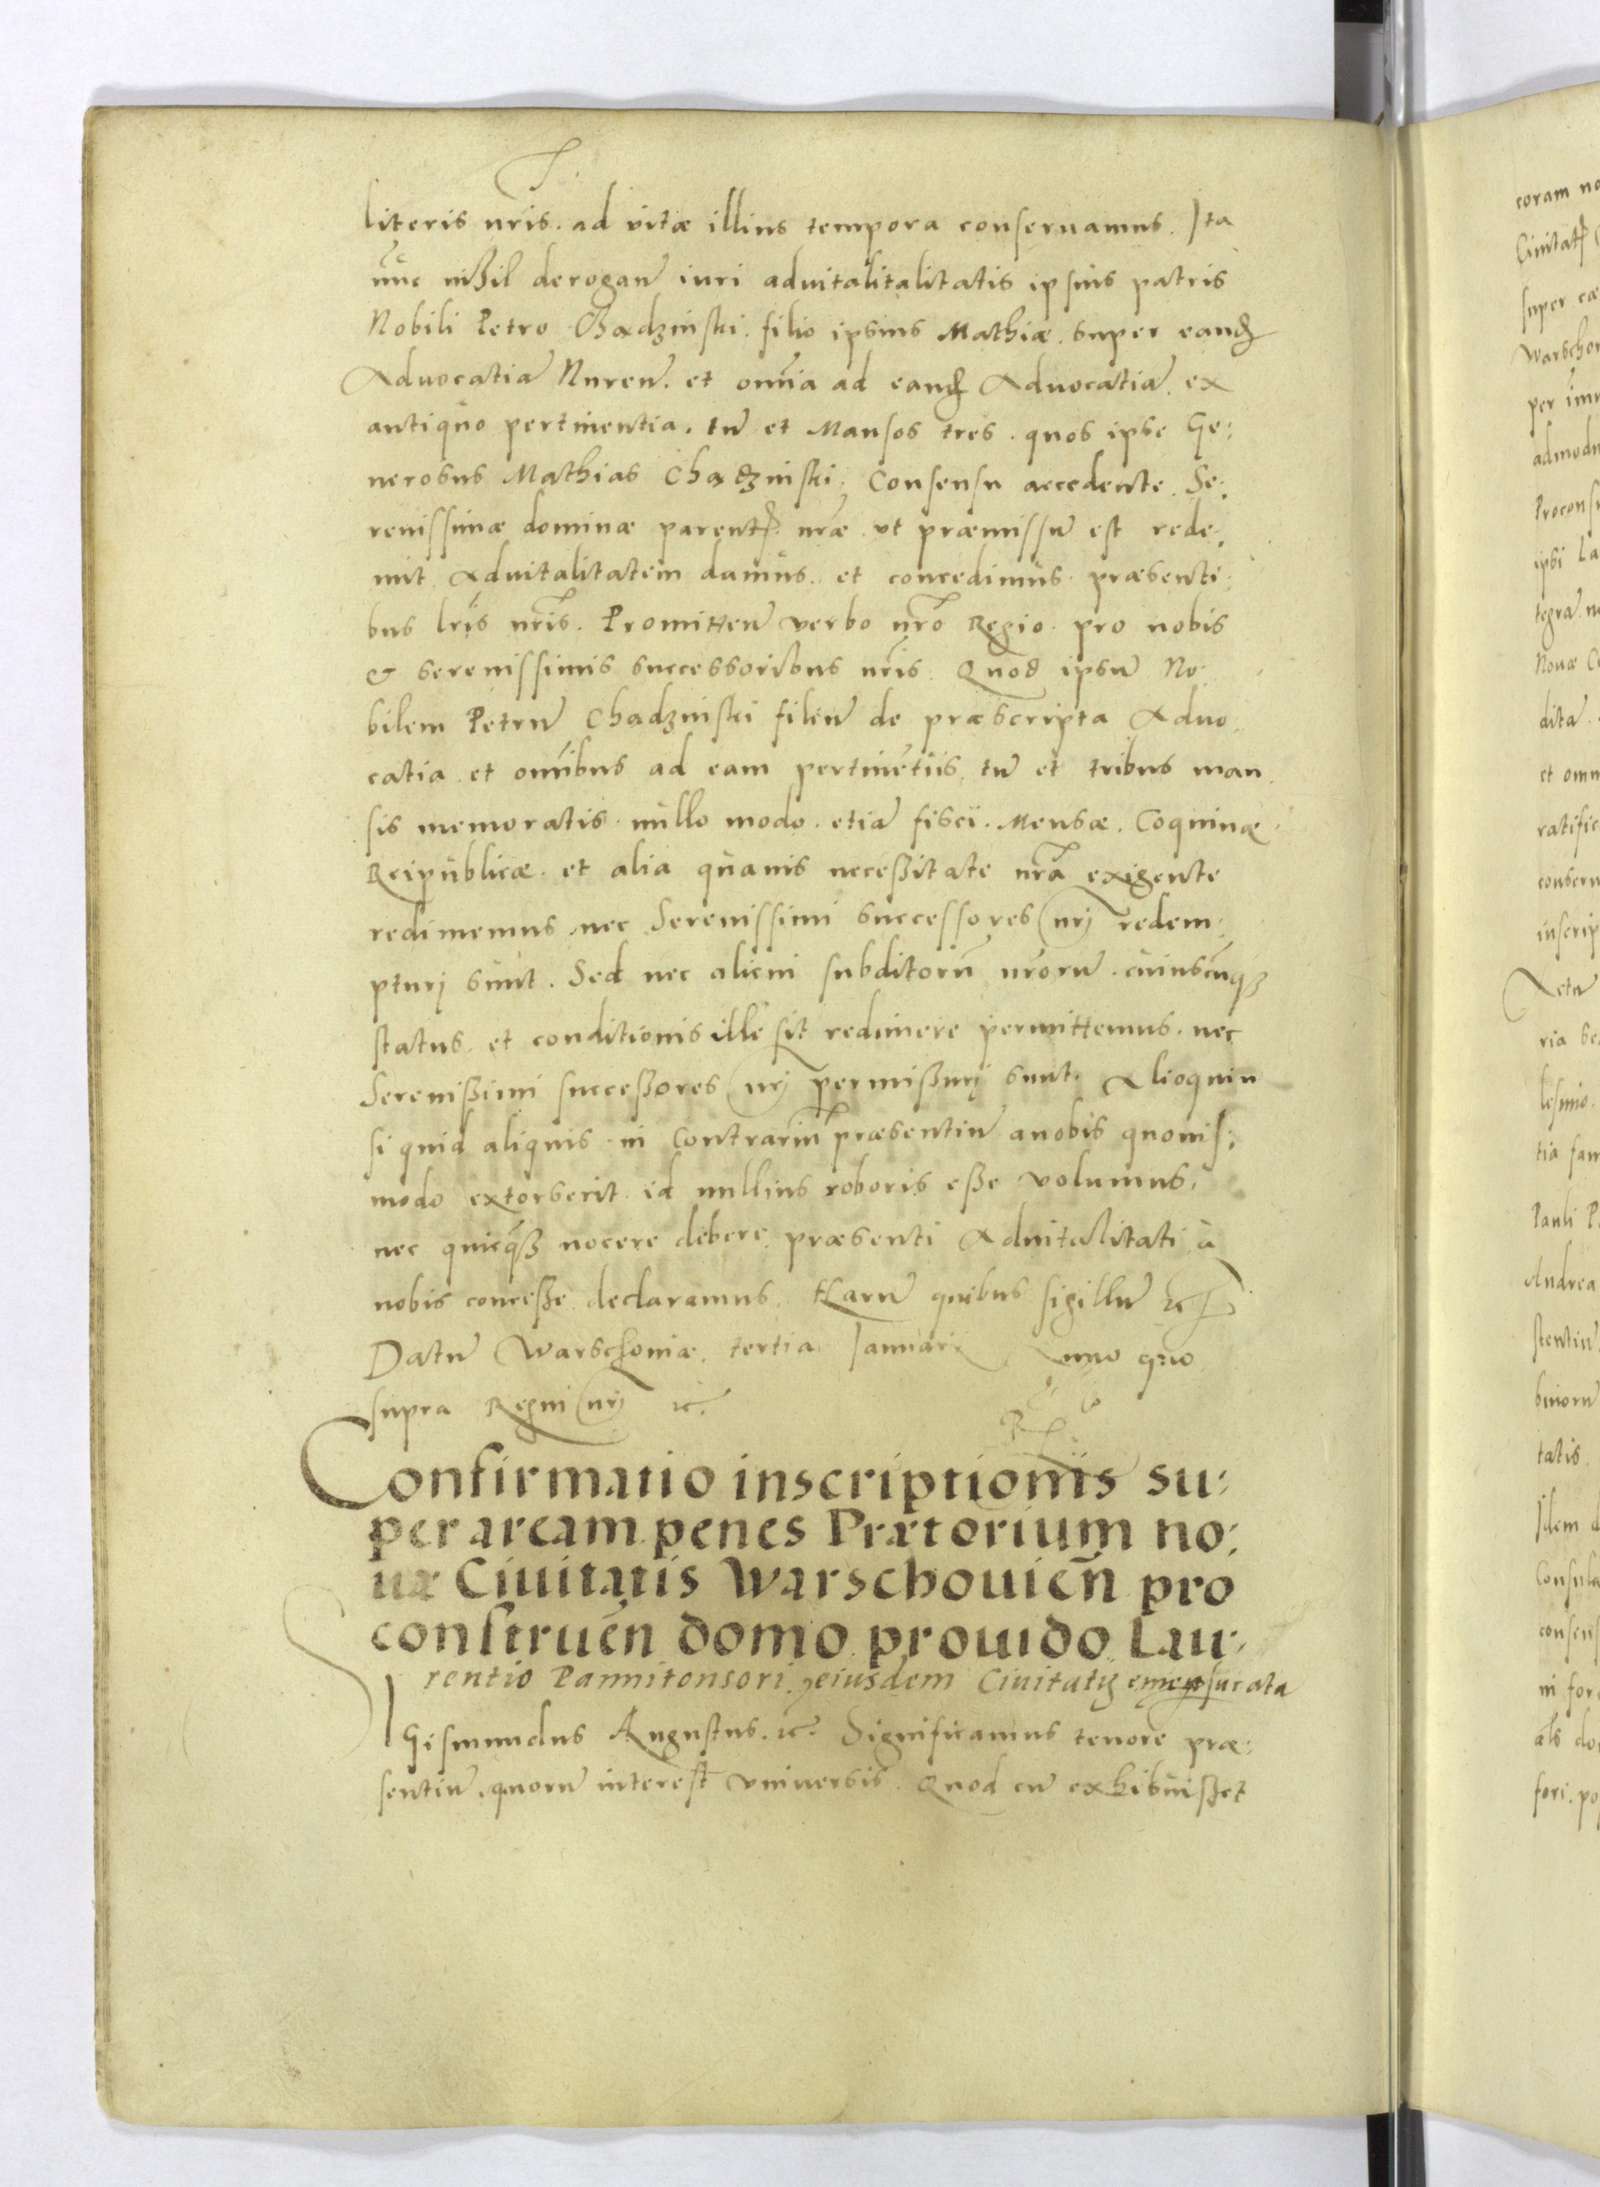 literis nris. ad vitæ illius tempora conseruamus. Ita
nũc nihil derogan̄ iuri aduitalitalitatis ipsius patris
Nobili Petro Chadzinski. filio ipsius Mathiæ. super eand̄
Aduocatiā Nuren̄. et omĩa ad eand̄ Aduocatiā. ex
antiquo pertinentia. tū et Mansos tres. quos ipse Ge:
nerosus Mathias Chadzinski. Consensu accedente. Se:
renissimæ dominæ parent̄. nræ. vt præmissū est rede:
mit. Aduitalitatem damus. et concedimus. præsenti:
bus lris nris. Promitten̄ verbo nro Regio. pro nobis
& serenissimis successoribus nris. Quod ipsū No:
bilem Petrū Chadzinski filiū de præscripta Aduo:
catia. et omĩbus ad eam pertinẽtiis. tū et tribus man
sis memoratis. nullo modo. etiā fisci. Mensæ. Coquinæ
Reipublicæ. et alia quauis necessitate nrā exigente
redimemus. nec Serenissimi successores nrj redem:
pturj sunt. Sed nec alicui subditorū nrorū. cuiuscũq3
status. et conditionis ille sit redimere permittemus. nec
Serenissimi successores nrj permissurj sunt. Alioquin
si quid aliquis in Contrariū præsentiū a nobis quouis:
modo extorserit. id nullius roboris esse volumus.
nec quicq̃3 nocere debere. præsenti Aduitalitati à
nobis concesse. declaramus. Harū quibus sigillū &c
Datū Warschouiæ. tertia Januarj Anno quo
supra Regni nrj &c.
Confirmatio inscriptionis su:
per aream penes Prætorium no:
uæ Ciuitatis Warschouien̄ pro
construen̄ domo prouido Lau:
rentio Pannitonsori, eiusdem Ciuitatis
Sigismundus Augustus. &c. Significamus tenore præ:
sentiū, quorū interest vniuersis. Quod cū exhibuisset
coram no
super
Warschou
per
admodu
Proconsu
ipsi La
tegrā. n
Nouæ C
dictā.
et omn
ratific
conseru
inscrip
ria
tia fam
Pauli P
Andrea
tatis.
Idem
Consula
consens
in foro
als do
fori. po